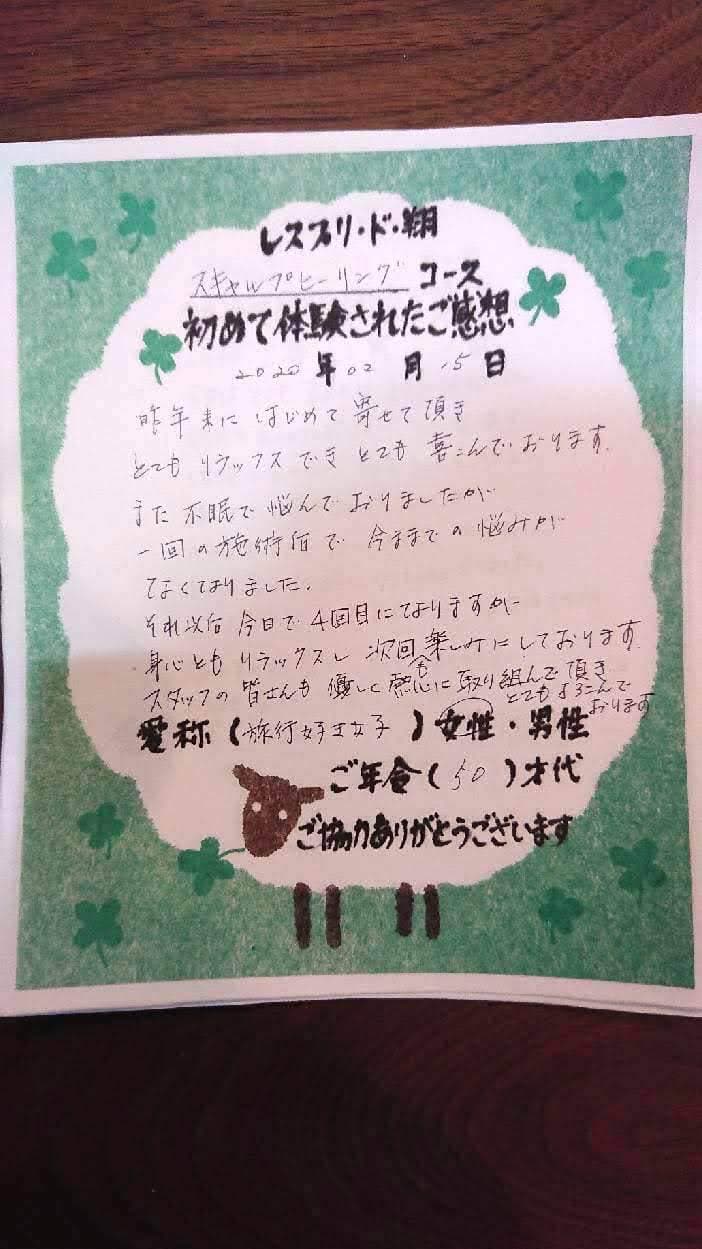 レスプリ・ド・翔
スキャルプヒーリング コース
初めて体験されたご感想
2020年02月15日
昨年末にはじめて寄せて頂き
とてもリラックスでき とても喜こんでおります。
また不眠で悩んでおりましたが
一回の施術后で 今までの悩みが
なくなりました。
それ以后 今日で4回目になりますが
身心とも リラックスし 次回も楽しみにしております。
スタッフの皆さんも 優しく熱心に取り組んで頂き
とてもよろこんで
おります
愛称(旅行好き女子)女性・男性
ご年令(50)才代
ご協力ありがとうございます